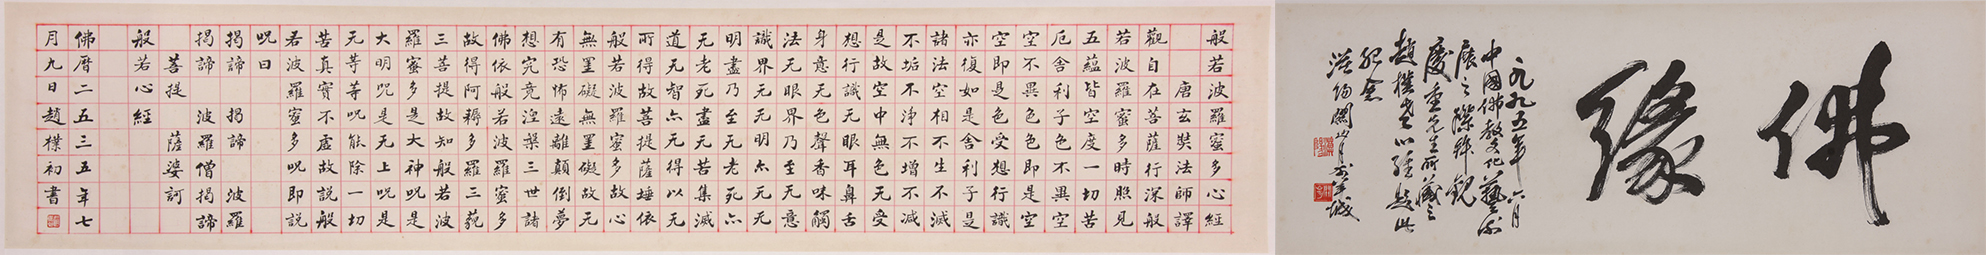 佛緣
一九九五年六月
中國佛教文化藝術
展之際 觀
慶重先生所藏之
趙樸老心經題此
紀念
般若波羅蜜多心經
唐玄奘法師譯
觀自在菩薩行深般
若波羅蜜多時照見
五蘊皆空度一切苦
厄舍利子色不異空
空不異色色即是空
空即是色受想行識
亦復如是舍利子是
諸法空相不生不滅
不垢不淨不增不減
是故空中無色无受
想行識无眼耳鼻舌
身意无色聲香味觸
法无眼界乃至无意
識界无无明亦无无
明盡乃至无老死亦
无老死盡无苦集滅
道无智亦无得以无
所得故菩提薩埵依
般若波羅蜜多故心
無罣礙無罣礙故无
有恐怖遠離顛倒夢
想究竟涅槃三世諸
佛依般若波羅蜜多
故得阿耨多羅三藐
三菩提故知般若波
羅蜜多是大神咒是
大明咒是无上咒是
无等等咒能除一切
苦真實不虛故說般
若波羅蜜多咒即說
咒曰
揭諦 揭諦 波羅
揭諦 波羅僧揭諦
菩提 薩婆訶
般若心經
佛曆二五三五年七
月九日趙樸初書